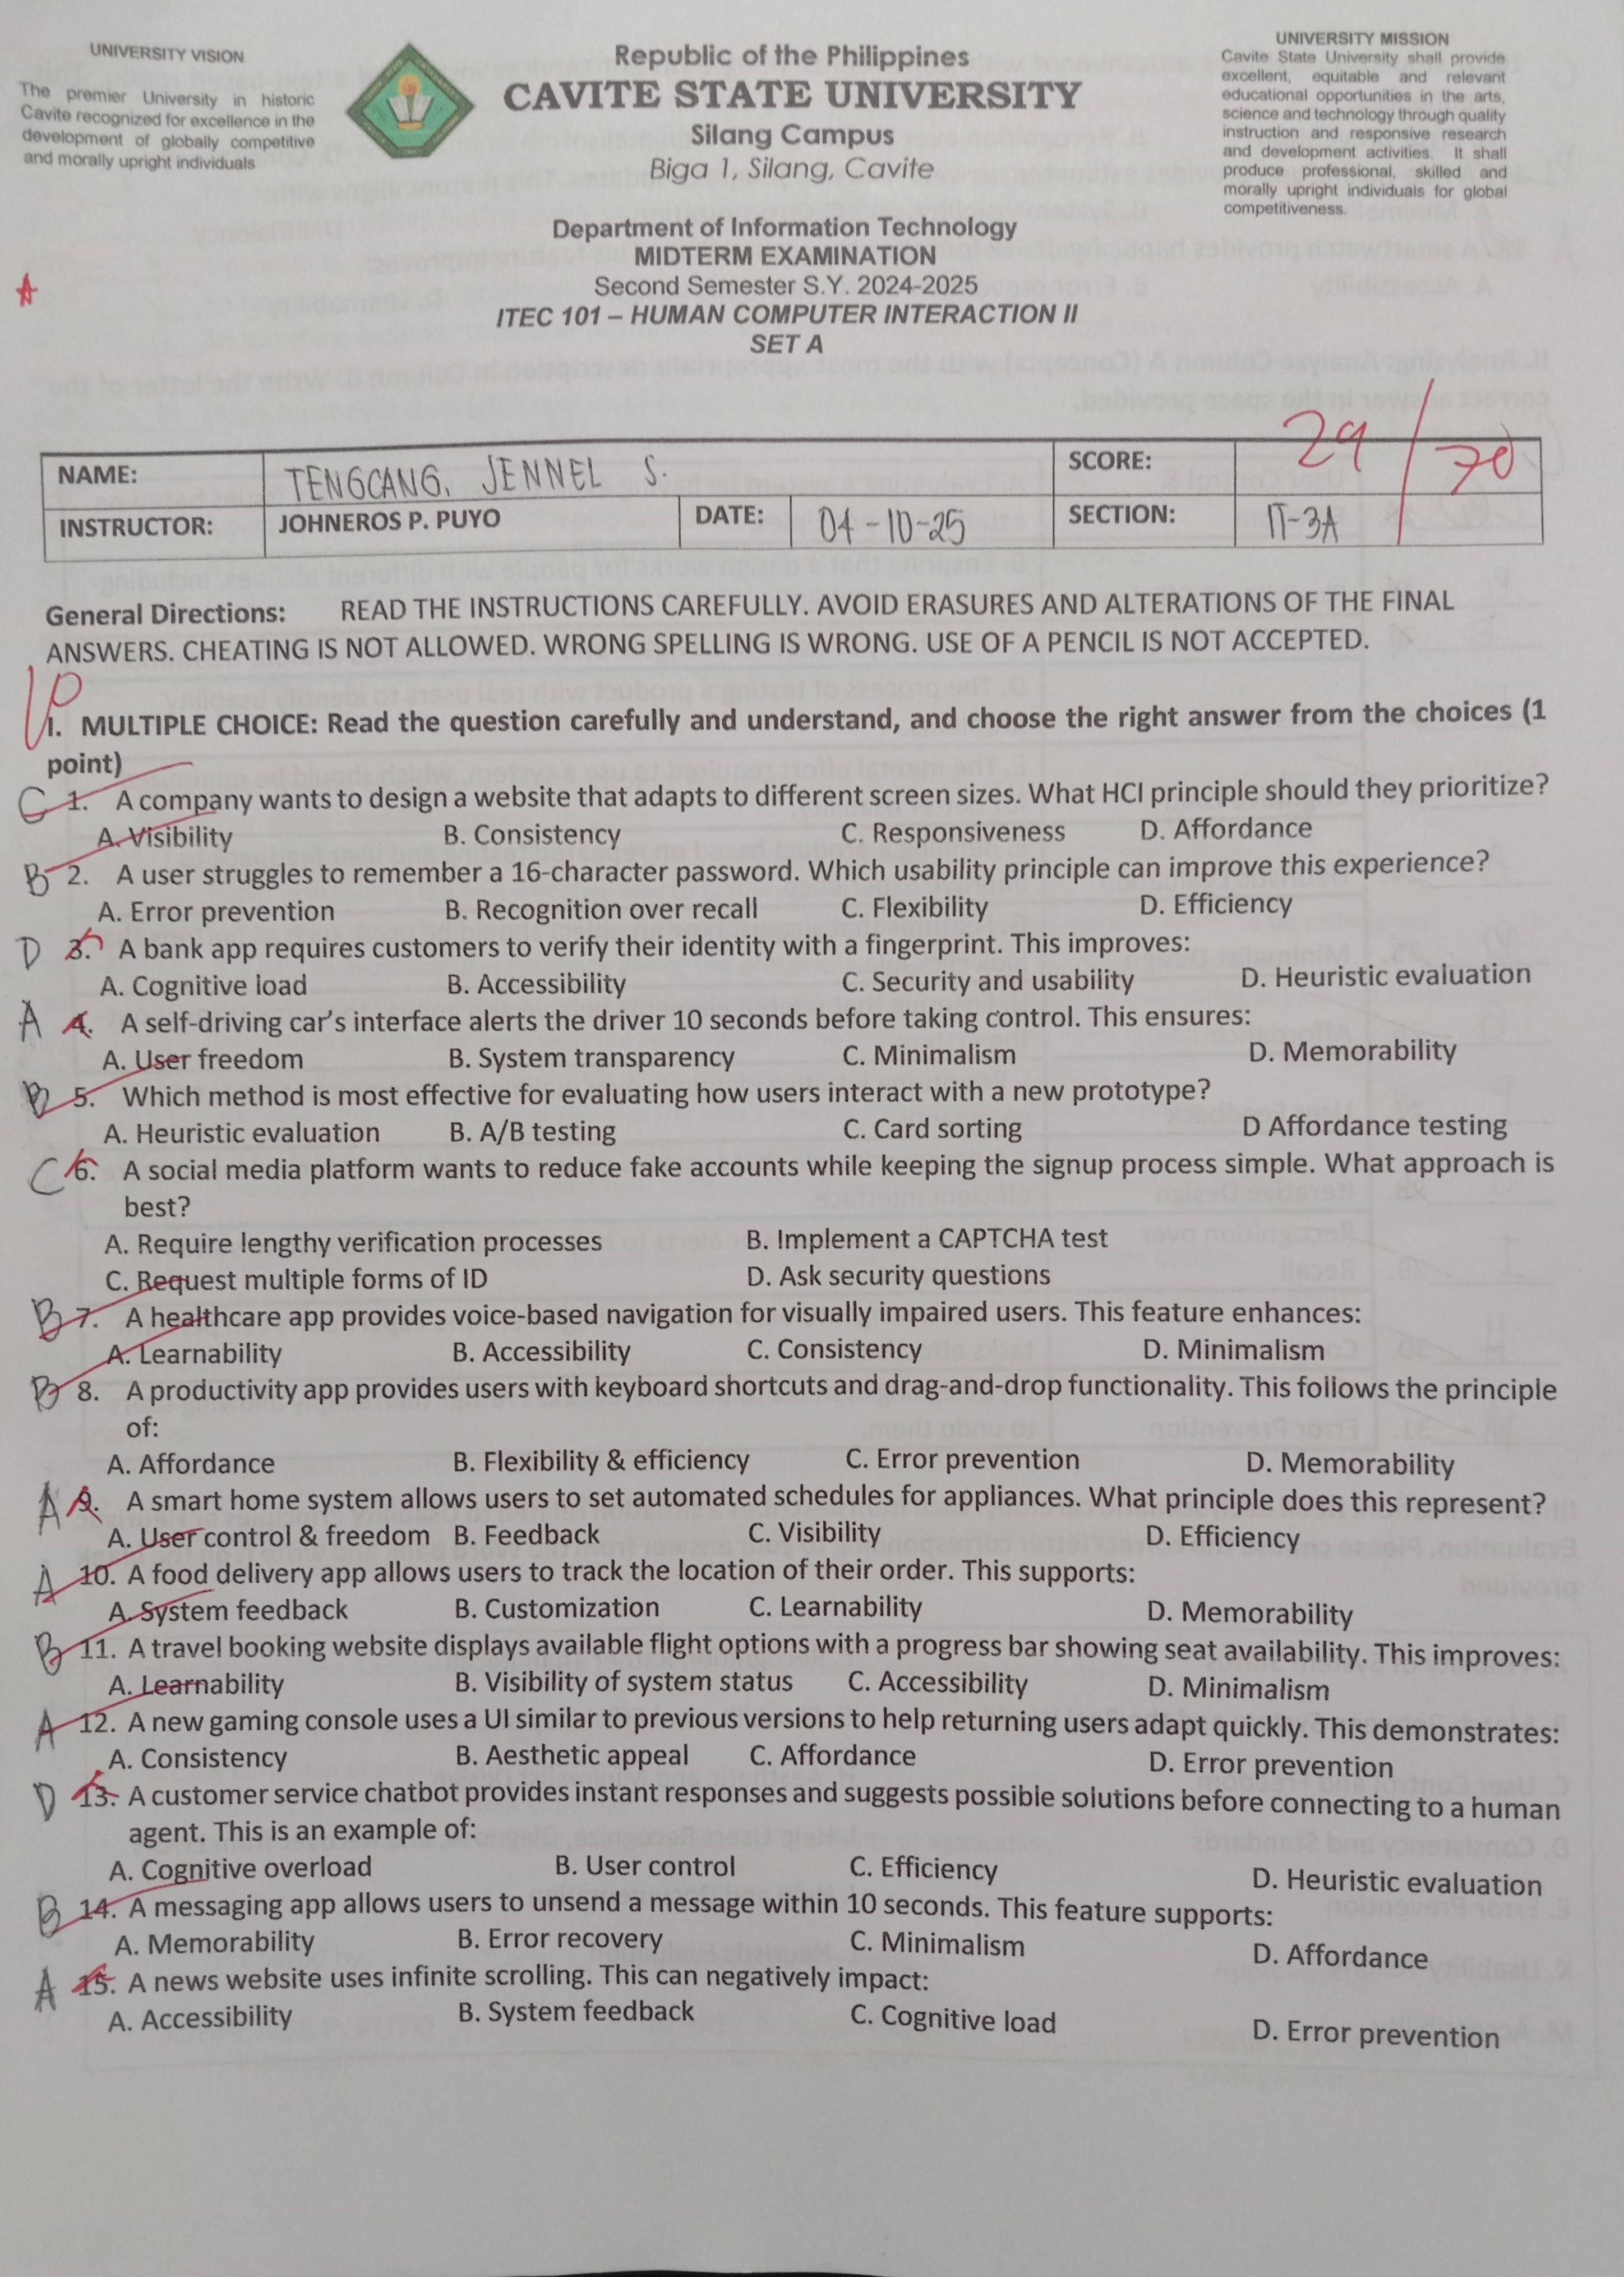 UNIVERSITY VISION
The premier University in historic
Cavite recognized for excellence in the
development of globally competitive
and morally upright individuals
Republic of the Philippines
CAVITE STATE UNIVERSITY
Silang Campus
Biga 1, Silang, Cavite
UNIVERSITY MISSION
Cavite State University shall provide
excellent, equitable and relevant
educational opportunities in the arts,
science and technology through quality
instruction and responsive research
and development activities. It shall
produce professional, skilled and
morally upright individuals for global
competitiveness.
Department of Information Technology
MIDTERM EXAMINATION
Second Semester S.Y. 2024-2025
ITEC 101 – HUMAN COMPUTER INTERACTION II
SET A
A
NAME: TENGCANG, JENNEL S. SCORE: 29/70
INSTRUCTOR: JOHNEROS P. PUYO DATE: 04-10-25 SECTION: IT-3A
General Directions: READ THE INSTRUCTIONS CAREFULLY. AVOID ERASURES AND ALTERATIONS OF THE FINAL
ANSWERS. CHEATING IS NOT ALLOWED. WRONG SPELLING IS WRONG. USE OF A PENCIL IS NOT ACCEPTED.
10
I. MULTIPLE CHOICE: Read the question carefully and understand, and choose the right answer from the choices (1
point)
C 1. A company wants to design a website that adapts to different screen sizes. What HCI principle should they prioritize?
A. Visibility B. Consistency C. Responsiveness D. Affordance
B 2. A user struggles to remember a 16-character password. Which usability principle can improve this experience?
A. Error prevention B. Recognition over recall C. Flexibility D. Efficiency
D 3. A bank app requires customers to verify their identity with a fingerprint. This improves:
A. Cognitive load B. Accessibility C. Security and usability D. Heuristic evaluation
A 4. A self-driving car's interface alerts the driver 10 seconds before taking control. This ensures:
A. User freedom B. System transparency C. Minimalism D. Memorability
B 5. Which method is most effective for evaluating how users interact with a new prototype?
A. Heuristic evaluation B. A/B testing C. Card sorting D Affordance testing
C 6. A social media platform wants to reduce fake accounts while keeping the signup process simple. What approach is
best?
A. Require lengthy verification processes B. Implement a CAPTCHA test
C. Request multiple forms of ID D. Ask security questions
B 7. A healthcare app provides voice-based navigation for visually impaired users. This feature enhances:
A. Learnability B. Accessibility C. Consistency D. Minimalism
B 8. A productivity app provides users with keyboard shortcuts and drag-and-drop functionality. This follows the principle
of:
A. Affordance B. Flexibility & efficiency C. Error prevention D. Memorability
A 9. A smart home system allows users to set automated schedules for appliances. What principle does this represent?
A. User control & freedom B. Feedback C. Visibility D. Efficiency
A 10. A food delivery app allows users to track the location of their order. This supports:
A. System feedback B. Customization C. Learnability D. Memorability
B 11. A travel booking website displays available flight options with a progress bar showing seat availability. This improves:
A. Learnability B. Visibility of system status C. Accessibility D. Minimalism
A 12. A new gaming console uses a UI similar to previous versions to help returning users adapt quickly. This demonstrates:
A. Consistency B. Aesthetic appeal C. Affordance D. Error prevention
D 13. A customer service chatbot provides instant responses and suggests possible solutions before connecting to a human
agent. This is an example of:
A. Cognitive overload B. User control C. Efficiency D. Heuristic evaluation
B 14. A messaging app allows users to unsend a message within 10 seconds. This feature supports:
A. Memorability B. Error recovery C. Minimalism D. Affordance
A 15. A news website uses infinite scrolling. This can negatively impact:
A. Accessibility B. System feedback C. Cognitive load D. Error prevention